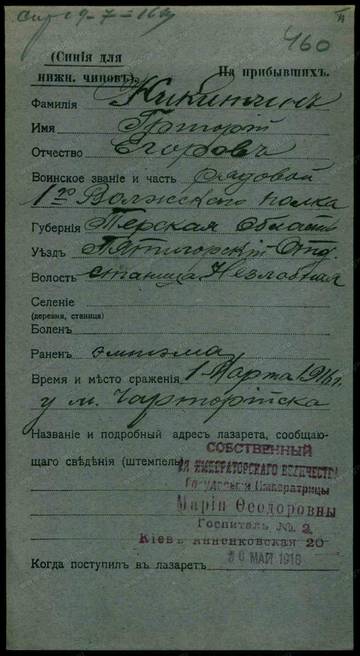 460
(Синія для
нижн. чиновъ).
На прибывшихъ.
Фамилія Никитинъ
Имя Григорій
Отчество Егоровъ
Воинское званіе и часть рядовой
1го Волжского полка
Губернія Терская область
Уѣздъ Пятигорскій Отд.
Волость станица Незлобная
Селеніе
(деревня, станица)
Боленъ
Раненъ эмпіэма
Время и мѣсто сраженія 1 Марта 1916 г.
у м. Чарторійска
Названіе и подробный адресъ лазарета, сообщаю-
щаго свѣдѣнія (штемпель)
СОБСТВЕННЫЙ
ИМПЕРАТОРСКАГО ВЕЛИЧЕСТВА
Государыни Императрицы
Маріи Ѳеодоровны
Госпиталь № 2
Кіевъ Анненковская 20
30 МАЙ 1916
Когда поступилъ въ лазаретъ